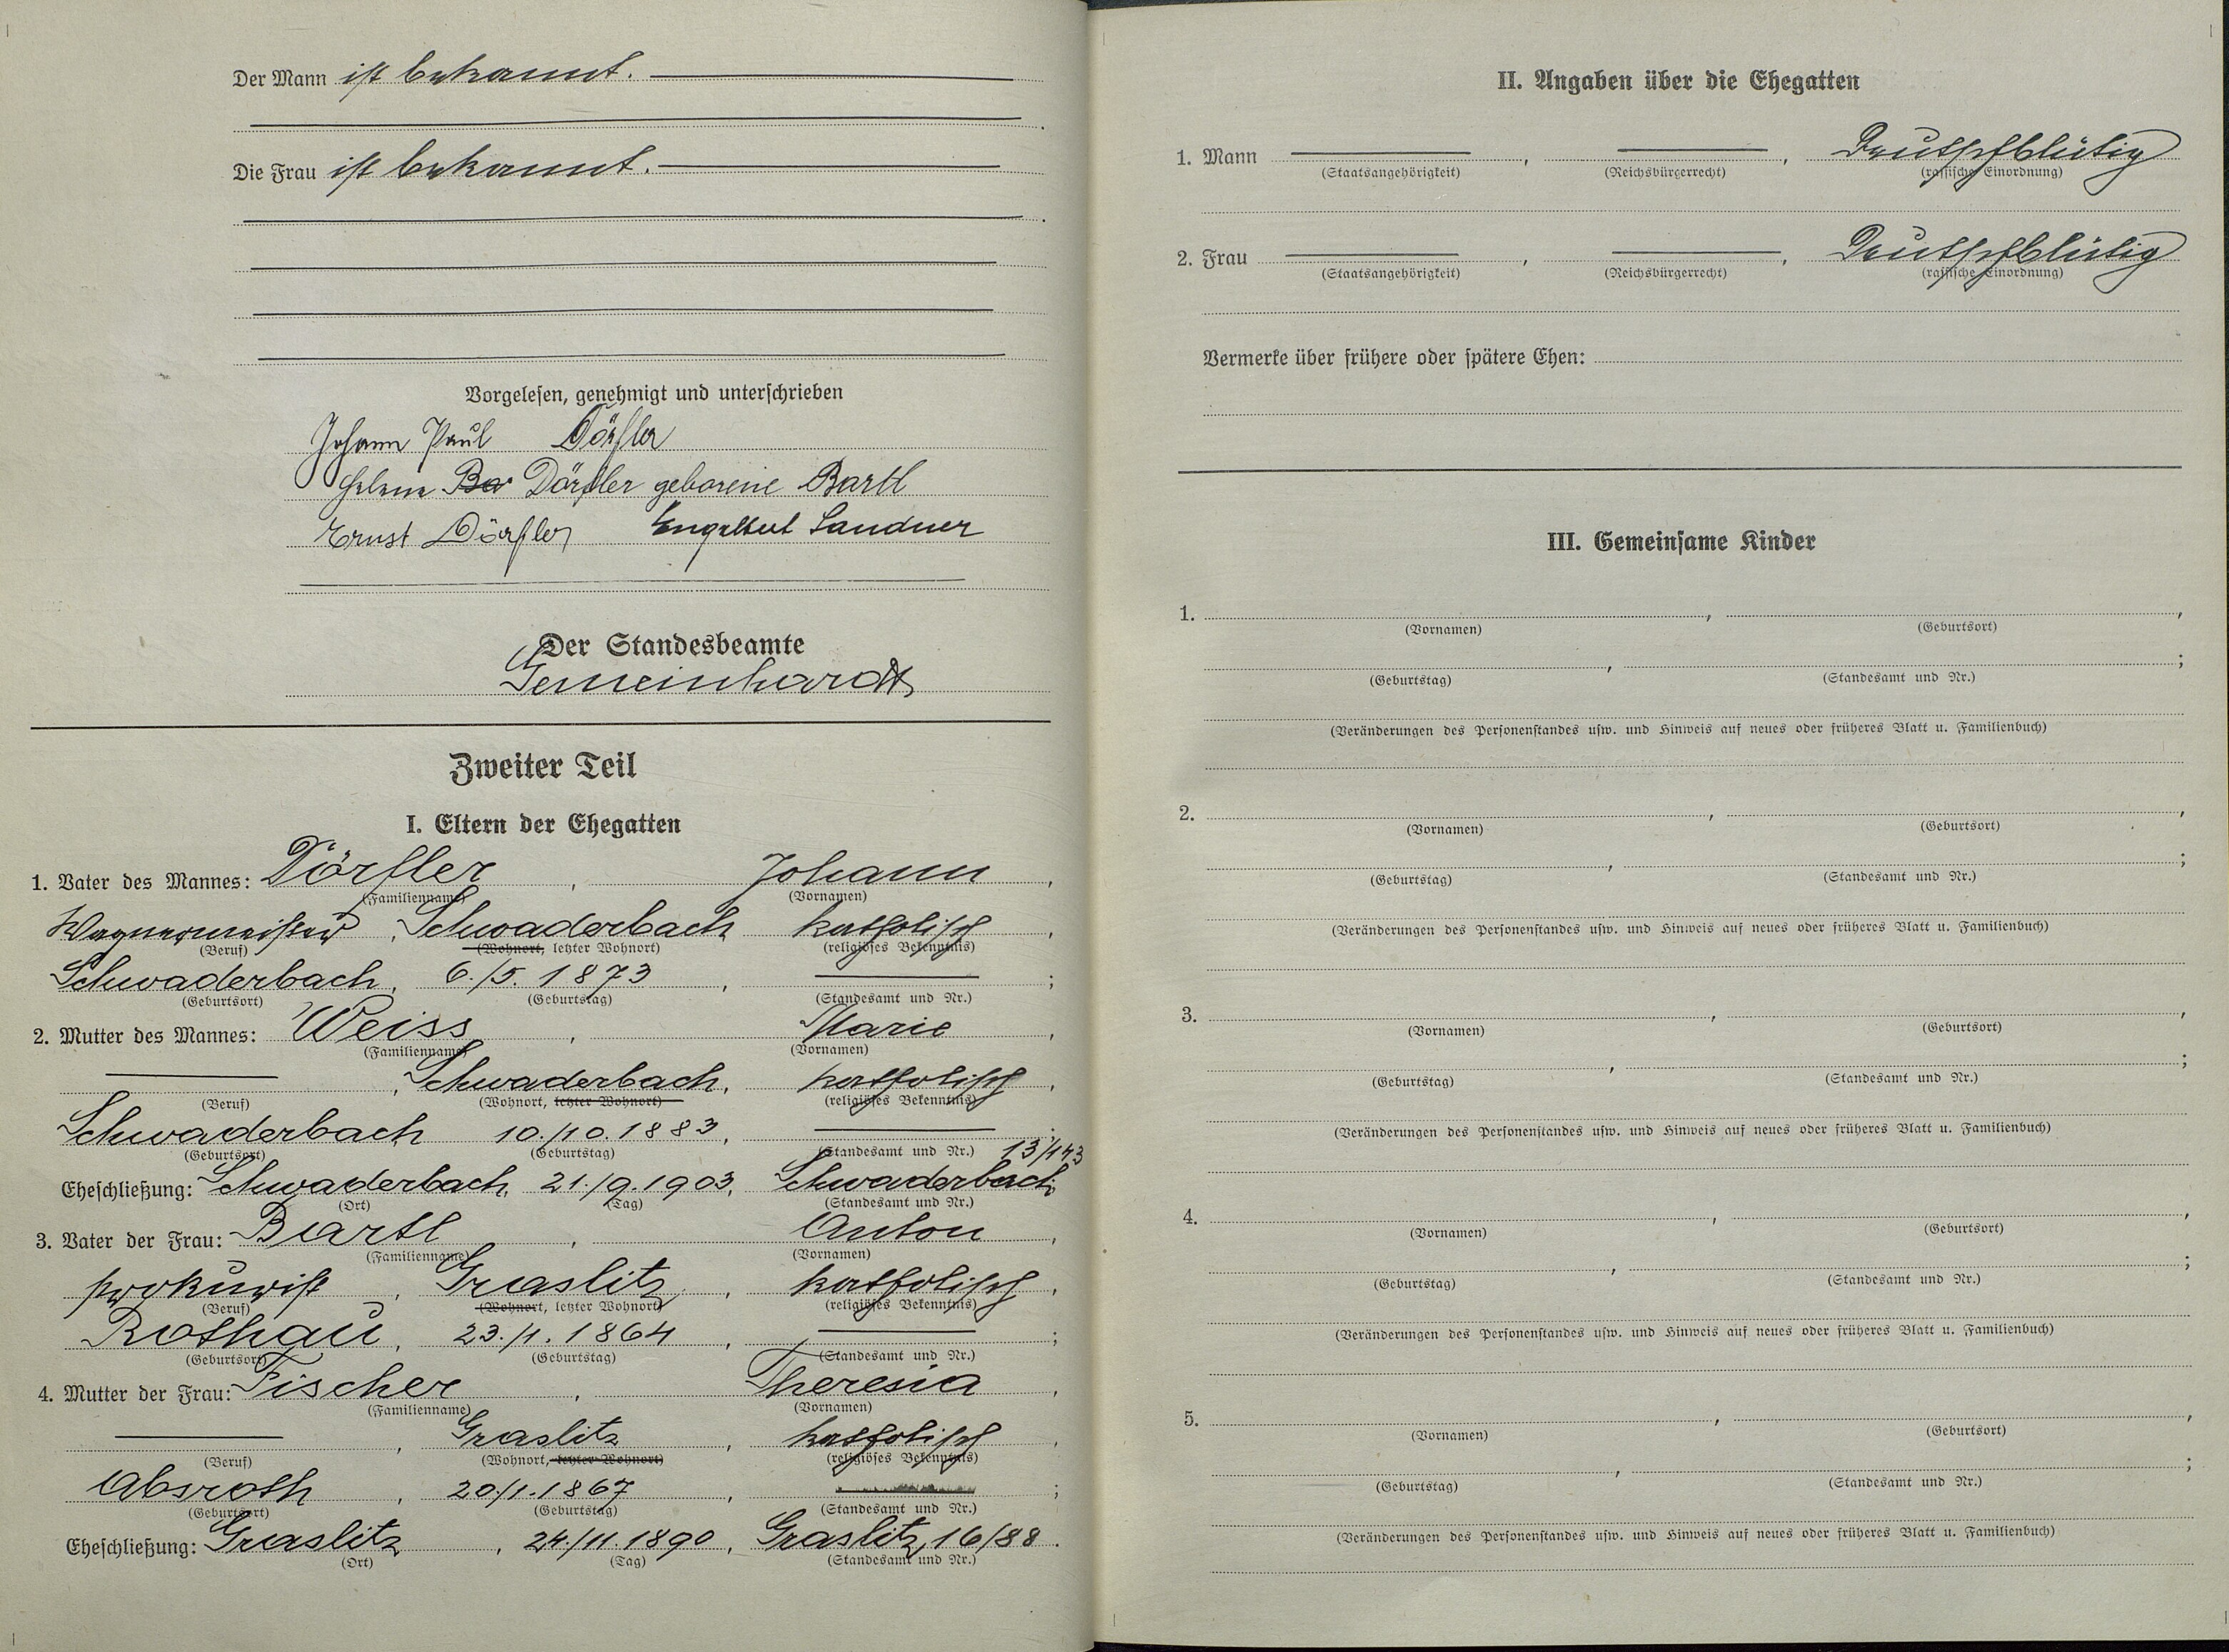 Der Mann ist bekannt.
Die Frau ist bekannt.
Vorgelesen, genehmigt und unterschrieben
Johann Paul Dörfler
Helene Ba Dörfler geborene Bartl
Ernst Dörfler Engelbert Sandner
Der Standesbeamte
Gemeinhardt
Zweiter Teil
I. Eltern der Ehegatten
1. Vater des Mannes: Dörfler, Johann,
(Familienname) (Vornamen)
Wagnermeister, Schwaderbach katholisch,
(Beruf) (Wohnort, letzter Wohnort) (religiöses Bekenntnis)
Schwaderbach, 6./5. 1873, ;
(Geburtsort) (Geburtstag) (Standesamt und Nr.)
2. Mutter des Mannes: Weiss, Marie,
(Familienname) (Vornamen)
, Schwaderbach, katholisch,
(Beruf) (Wohnort, letzter Wohnort) (religiöses Bekenntnis)
Schwaderbach 10./10. 1883, ;
(Geburtsort) (Geburtstag) (Standesamt und Nr.) 13/143
Eheschließung: Schwaderbach, 21./9. 1903, Schwaderbach;
(Ort) (Tag) (Standesamt und Nr.)
3. Vater der Frau: Bartl, Anton,
(Familienname) (Vornamen)
Prokurist, Graslitz, katholisch,
(Beruf) (Wohnort, letzter Wohnort) (religiöses Bekenntnis)
Rothau, 23./1. 1864, ;
(Geburtsort) (Geburtstag) (Standesamt und Nr.)
4. Mutter der Frau: Fischer, Theresia,
(Familienname) (Vornamen)
, Graslitz, katholisch,
(Beruf) (Wohnort, letzter Wohnort) (religiöses Bekenntnis)
Absroth, 20./1. 1867, ;
(Geburtsort) (Geburtstag) (Standesamt und Nr.)
Eheschließung: Graslitz, 24./11. 1890, Graslitz, 16/88.
(Ort) (Tag) (Standesamt und Nr.)
II. Angaben über die Ehegatten
1. Mann , , Deutschblütig
(Staatsangehörigkeit) (Reichsbürgerrecht) (rassische Einordnung)
2. Frau , , Deutschblütig
(Staatsangehörigkeit) (Reichsbürgerrecht) (rassische Einordnung)
Vermerke über frühere oder spätere Ehen:
III. Gemeinsame Kinder
1. , ,
(Vornamen) (Geburtsort)
, ;
(Geburtstag) (Standesamt und Nr.)
(Veränderungen des Personenstandes usw. und Hinweis auf neues oder früheres Blatt u. Familienbuch)
2. , ,
(Vornamen) (Geburtsort)
, ;
(Geburtstag) (Standesamt und Nr.)
(Veränderungen des Personenstandes usw. und Hinweis auf neues oder früheres Blatt u. Familienbuch)
3. , ,
(Vornamen) (Geburtsort)
, ;
(Geburtstag) (Standesamt und Nr.)
(Veränderungen des Personenstandes usw. und Hinweis auf neues oder früheres Blatt u. Familienbuch)
4. , ,
(Vornamen) (Geburtsort)
, ;
(Geburtstag) (Standesamt und Nr.)
(Veränderungen des Personenstandes usw. und Hinweis auf neues oder früheres Blatt u. Familienbuch)
5. , ,
(Vornamen) (Geburtsort)
, ;
(Geburtstag) (Standesamt und Nr.)
(Veränderungen des Personenstandes usw. und Hinweis auf neues oder früheres Blatt u. Familienbuch)